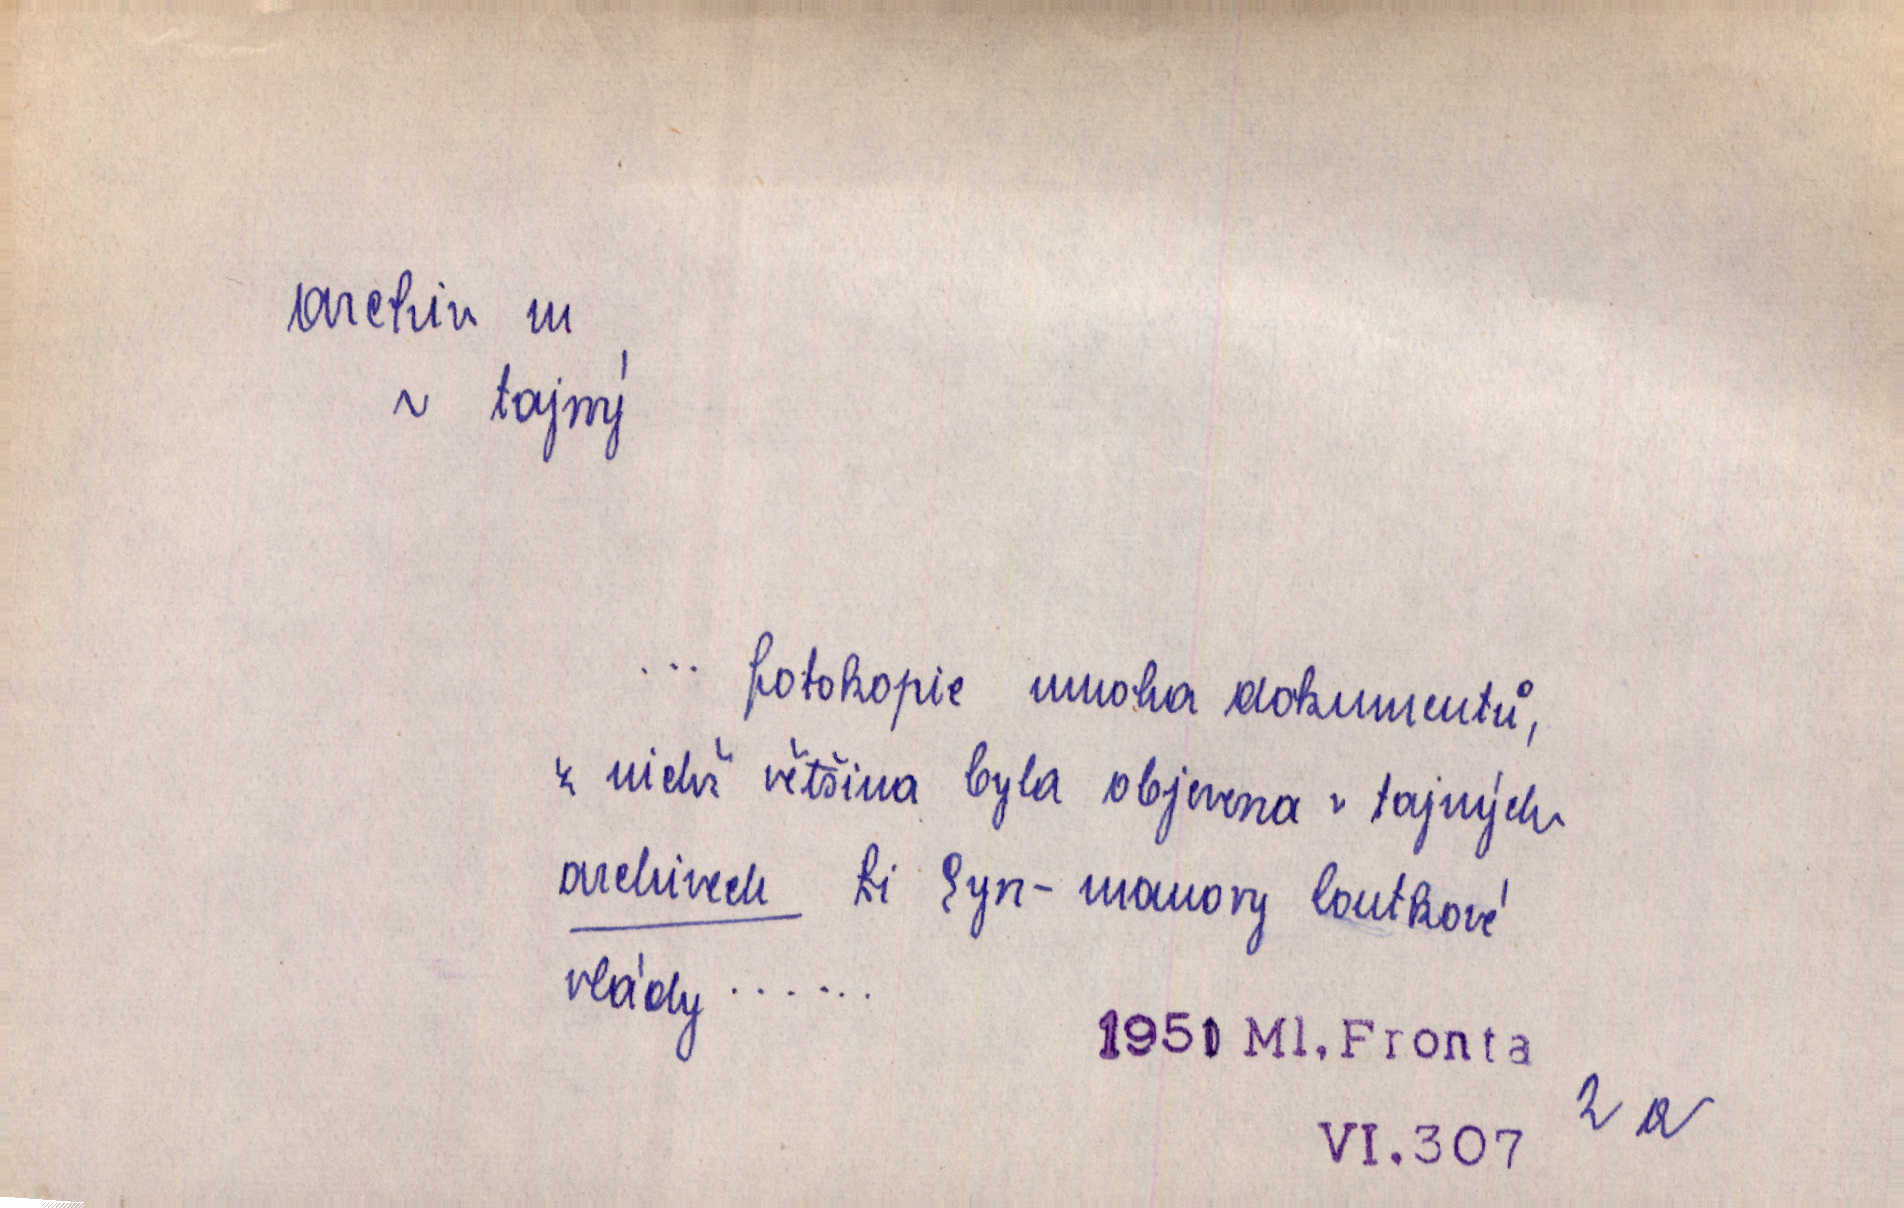 archiv m
~ tajný
... fotokopie mnoha dokumentů,
z nichž většina byla objevena v tajných
archivech Li Syn-manovy loutkové
vlády ......
1951 Ml.Fronta
VI.307 2 a